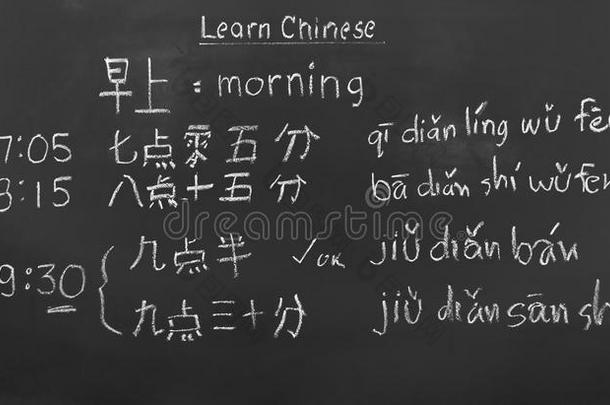 Learn Chinese
早上 : morning
7:05 七点零五分 qī diǎn líng wǔ fēn
8:15 八点十五分 bā diǎn shí wǔ fen
9:30 九点半 ✓OK jiǔ diǎn bán
九点三十分 jiǔ diǎn sān shí
dreamstime